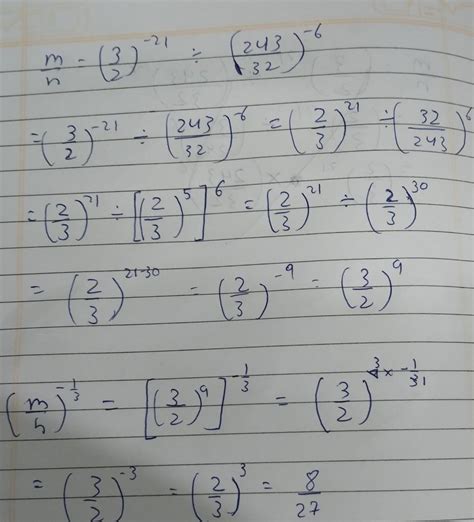 m/n = (3/2)^-21 ÷ (243/32)^-6
= (3/2)^-21 ÷ (243/32)^-6 = (2/3)^21 ÷ (32/243)^6
= (2/3)^21 ÷ [(2/3)^5]^6 = (2/3)^21 ÷ (2/3)^30
= (2/3)^21-30 = (2/3)^-9 = (3/2)^9
(m/n)^-1/3 = [(3/2)^9]^-1/3 = (3/2)^3 × -1/31
= (3/2)^-3 = (2/3)^3 = 8/27